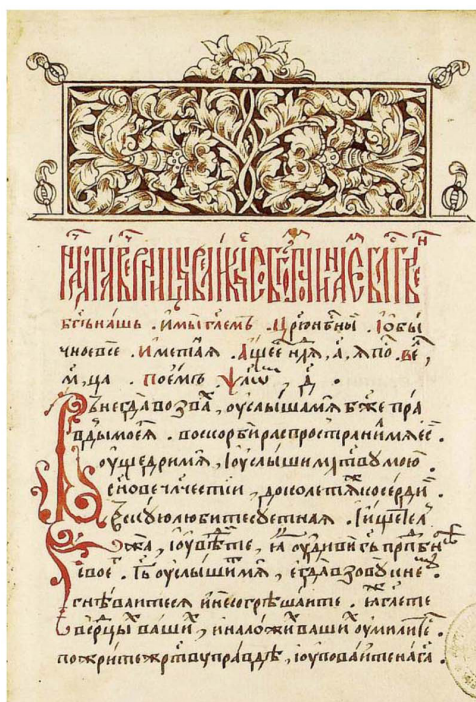 бг҃ъ нашь . И мы гл҃емъ . Цр҃ю нбⷭ҇ныи . I обы
чное все . И метанїѧ .
м҃ца . поемъ ѱалѡⷨ , д҃ .
Внегда возваⷯ , оуслыша мѧ бж҃е пра
вды моеѧ . во скорби распространи мѧ єсⷭ҇ .
оущедри мѧ , I оуслыши млт҃ву мою .
Сн҃ове чл҃честїи , доколе тѧжкосердиⷩ .
Вскую любите суетная . I ищете л
жа , I оувѣⷣте , ꙗⷦ оудиви гь҃ прпⷣбнⷢ
своеⷢ . Гь҃ оуслышиⷮ мѧ , егда возову к немⷹ
гнѣваитеся и не согрѣшаите . ꙗже гл҃ете
в срⷣцыⷯ вашиⷯ , и на ложиⷯ вашиⷯ оумилитеⷭ .
пожрите жрт҃ву правдѣ , I оуповаите на гⷭ҇а .